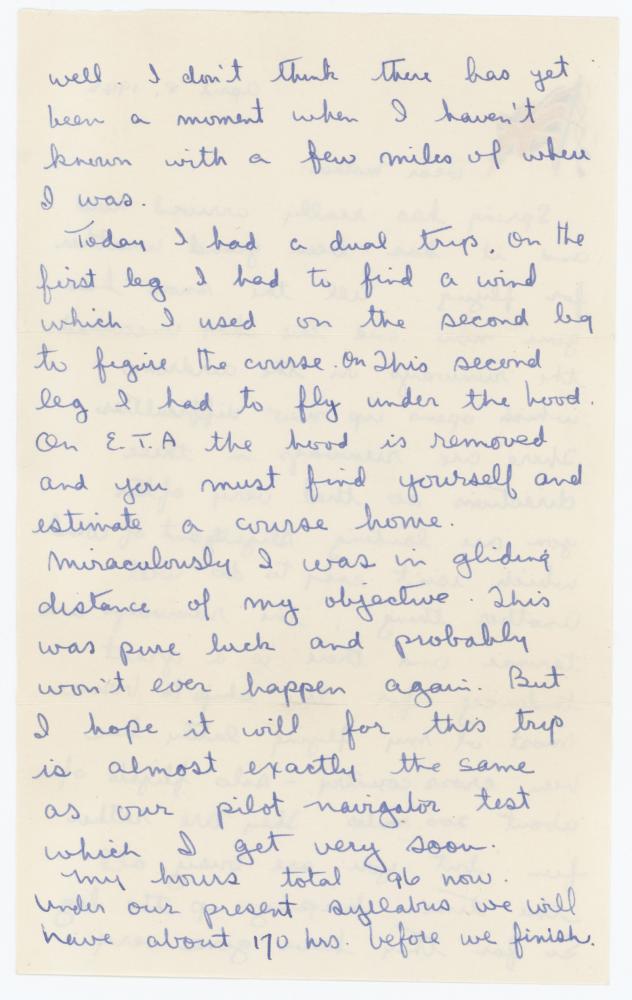 well. I don't think there has yet
been a moment when I haven't
known with a few miles of where
I was.
Today I had a dual trip. On the
first leg I had to find a wind
which I used on the second leg
to figure the course. On this second
leg I had to fly under the hood.
On E.T.A the hood is removed
and you must find yourself and
estimate a course home.
Miraculously I was in gliding
distance of my objective. This
was pure luck and probably
won't ever happen again. But
I hope it will for this trip
is almost exactly the same
as our pilot navigator test
which I get very soon.
My hours total 96 now.
Under our present syllabus we will
have about 170 hrs. before we finish.